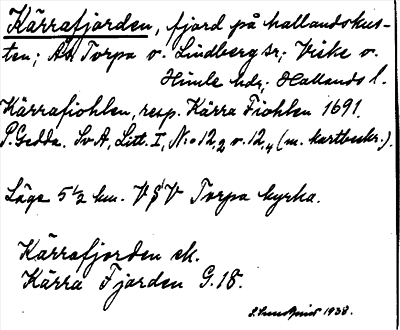 Kärrafjorden, fjord på hallandskus-
ten; Ås Torpa o. Lindberg sr; Viske o.
Himle hdr; Hallands l.
Kärrafiohlen, resp. Kärra Fiohlen 1691.
P. Gedda. Sv A, Litt. I, N:o 12,2 o. 12,4 (m. kartbeskr.).
Läge 5 1/2 km. V Torpa kyrka.
Kärrafjorden ek.
Kärra Fjorden G. 18.
1938.